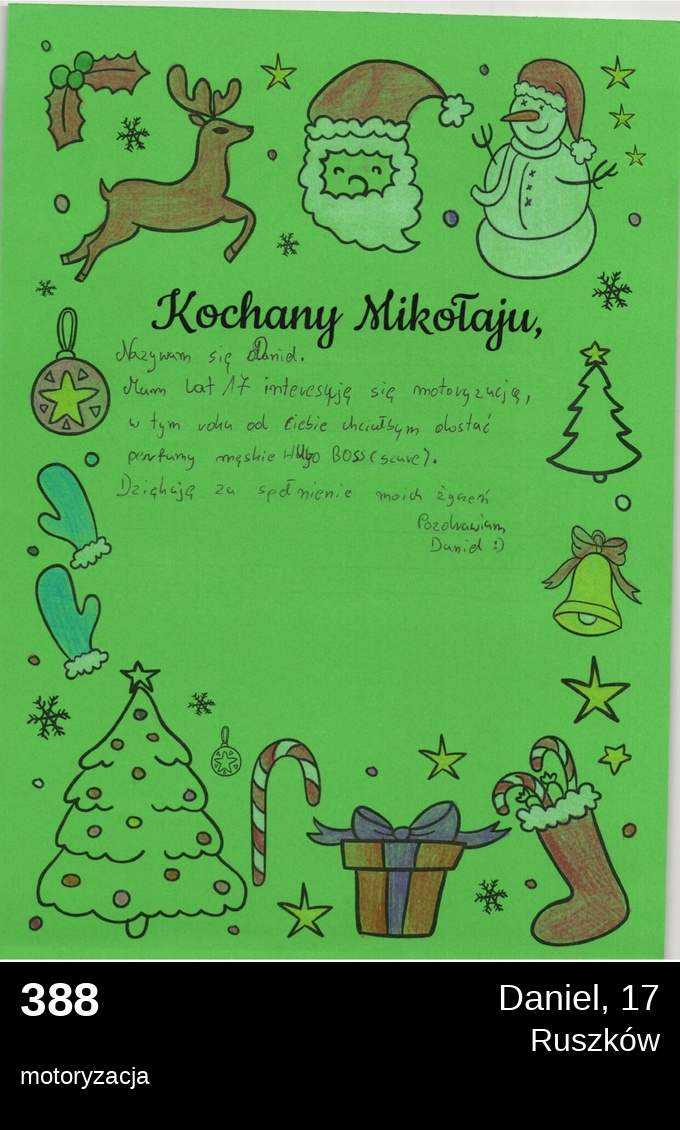 Kochany Mikołaju,
Nazywam się Daniel.
Mam lat 17 interesują się motoryzacją,
w tym roku od Ciebie chciałbym dostać
perfumy męskie Hugo BOSS (scure).
Dziękują za spełnienie moich życzeń
Pozdrawiam
Daniel :)
388
Daniel, 17
Ruszków
motoryzacja